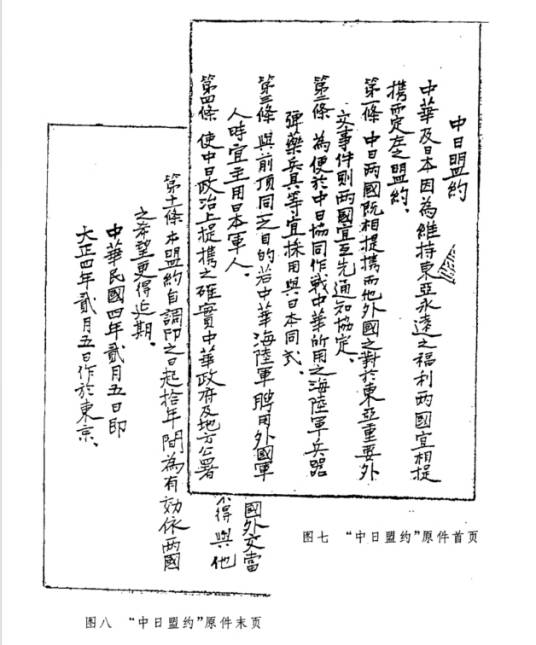 中日盟約
中華及日本因為維持東亞永遠之福利两國宜相提
携而定左之盟約、
第一條 中日两國既相提携而他外國之對於東亞重要外
交事件則两國宜互先通知協定、
第二條 為便於中日協同作戰中華所用之海陸軍兵器
彈藥兵具等宜採用與日本同式、
第三條 與前項同之目的若中華海陸軍聘用外國軍
人時宜主用日本軍人、
第四條 使中日政治上提携之確實中華政府及地方公署
图七 “中日盟约”原件首页
國外交當
不得與他
第十一條 本盟約自調印之日起拾年間為有効依两國
之希望更得延期、
中華民國四年貳月五日即
大正四年貳月五日作於東京、
图八 “中日盟约”原件末页